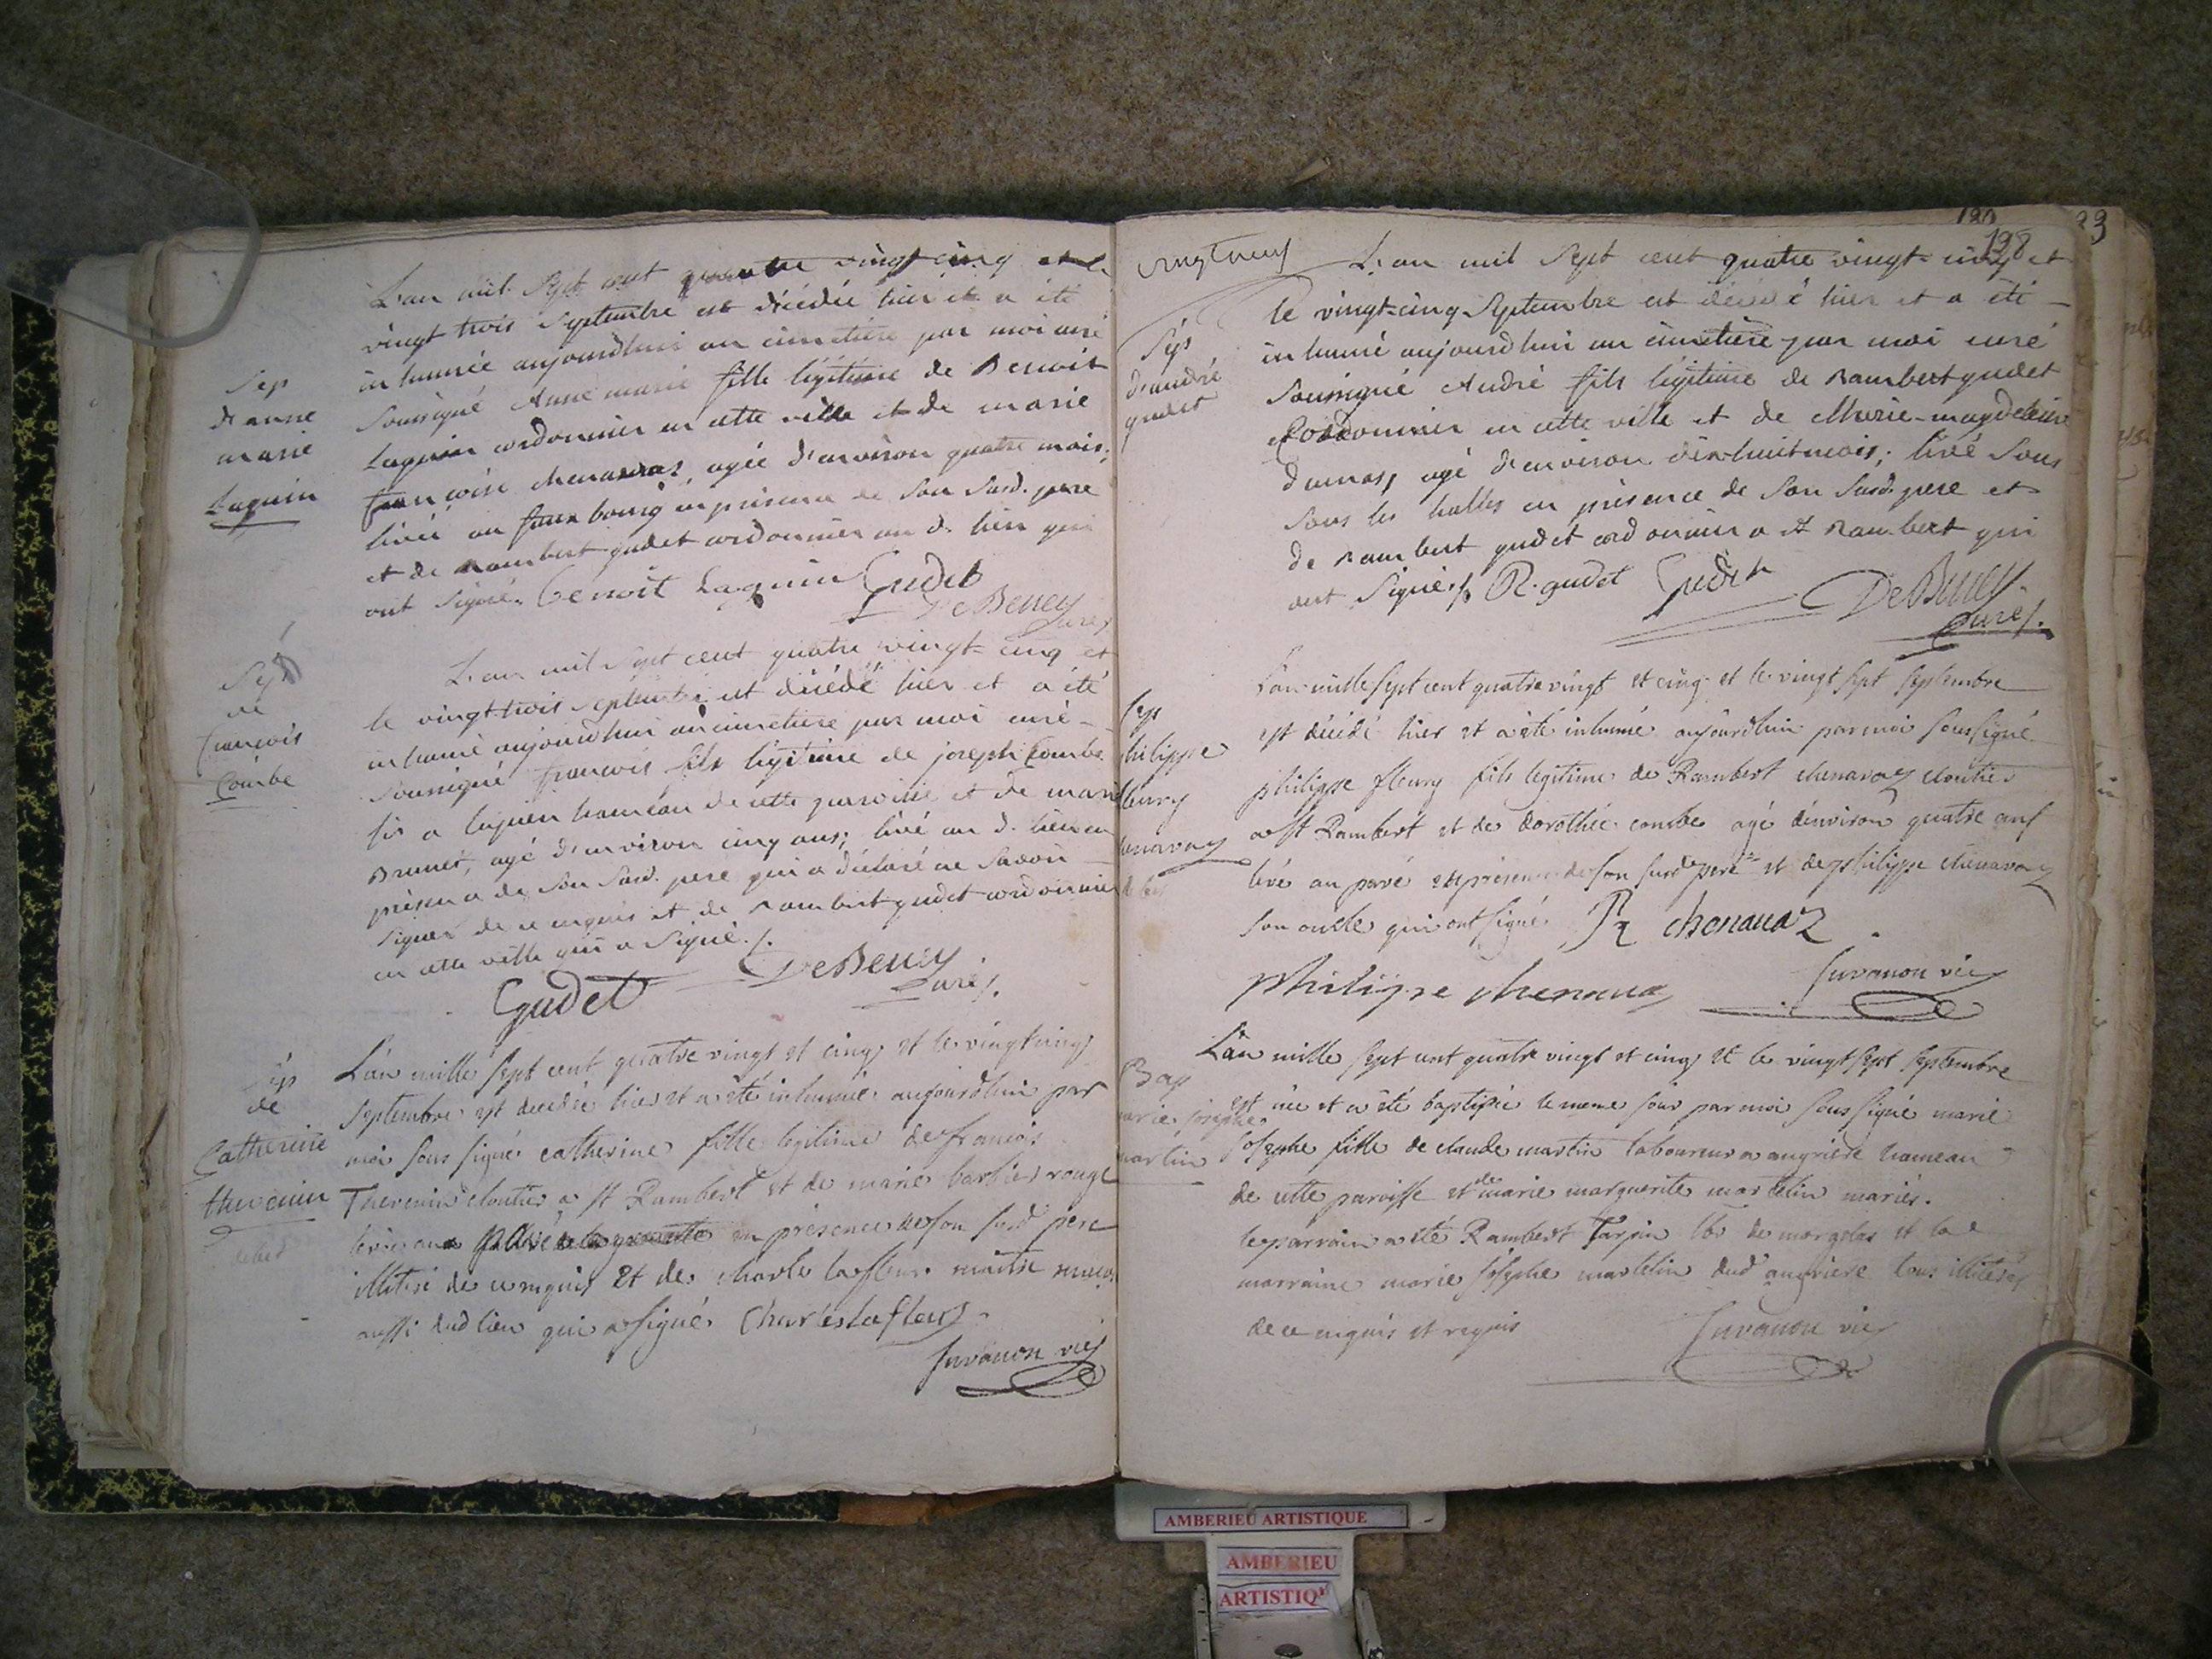 Sep
d'anne
marie
Laguin
L'an mil Sept cent quatre vingt cinq et le
vingt trois Septembre est décédée hier et a été
inhumée aujourdhui au cimetiere par moi curé
soussigné Anne marie fille légitime de Benoit
Laguin cordonnier en cette ville et de marie
françoise chenavaz, agée d'environ quatre mois;
livée au faux bourg en présence de son susd. pere
et de Rambert gudet cordonnier au d. lieu qui
ont signé. benoit Laguin Gudet
DeBeney
Curé
Sep
de
françois
Combe
L'an mil Sept cent quatre vingt-cinq et
le vingt-trois septembre est décédé hier et a été
inhumé aujourdhui au cimetiere par moi curé
soussigné françois fils légitime de joseph Combe
hameau de cette paroisse et de marie
Brunet, agé d'environ cinq ans; livé au d. lieu en
présence de son susd. pere qui a déclaré ne savoir
signer de ce enquis et de Rambert gudet cordonnier
en cette ville qui a signé./.
Gudet DeBeney
Curé/.
Sep
de
Catherine
thevenin
L'an mille sept cent quatre vingt et cinq et le vingt cinq
septembre est decedée hier et a été inhumée aujourdhui par
moi sous signé catherine fille legitime de francois
Thevenin cloutier a st Rambert et de marie barbier rouge
levée au pavé en présence de son susd pere
illitéré de ce enquis et de charle lafleur maitre
aussi dud lieu qui a signé Charles Lafleur
Juvanon vic
198
vingt neuf
Sep
d'andré
gudet
L'an mil Sept cent quatre vingt-cinq et
le vingt-cinq Septembre est décédé hier et a été
inhumé aujourdhui au cimetiere par moi curé
soussigné André fils légitime de Rambert gudet
Cordonnier en cette ville et de Marie-magdeleine
dumas, agé d'environ dix-huit mois; livé sous
sous les halles en présence de son susd. pere et
de Rambert gudet cordonnier a st Rambert qui
ont signé/. R. gudet Gudet DeBeney
Curé/.
Sep
philippe
fleury
chenavaz
L'an mille sept cent quatre vingt et cinq et le vingt sept septembre
est décédé hier et a été inhumé aujourdhui par moi soussigné
philippe fleury fils legitime de Rambert chenavaz cloutier
a st Rambert et de dorothée combe agé d'environ quatre ans
levé au pavé en présence de son susd pere et de philippe chenavaz
son oncle qui ont signé R chenavaz
Philippe chenavaz Juvanon vic
Bap
marie josephe
martin
L'an mille sept cent quatre vingt et cinq et le vingt sept septembre
est née et a été baptisée le meme jour par moi sous signé marie
josephe fille de claude martin laboureur a angrière hameau
de cette paroisse et de marie marguerite martelin mariés.
le parrain a été Rambert Tarpin lbr de morgelas et la
marraine marie josephe martelin dud angrière tous illiterés
de ce enquis et requis Juvanon vic
AMBERIEU ARTISTIQUE
AMBERIEU
ARTISTIQ